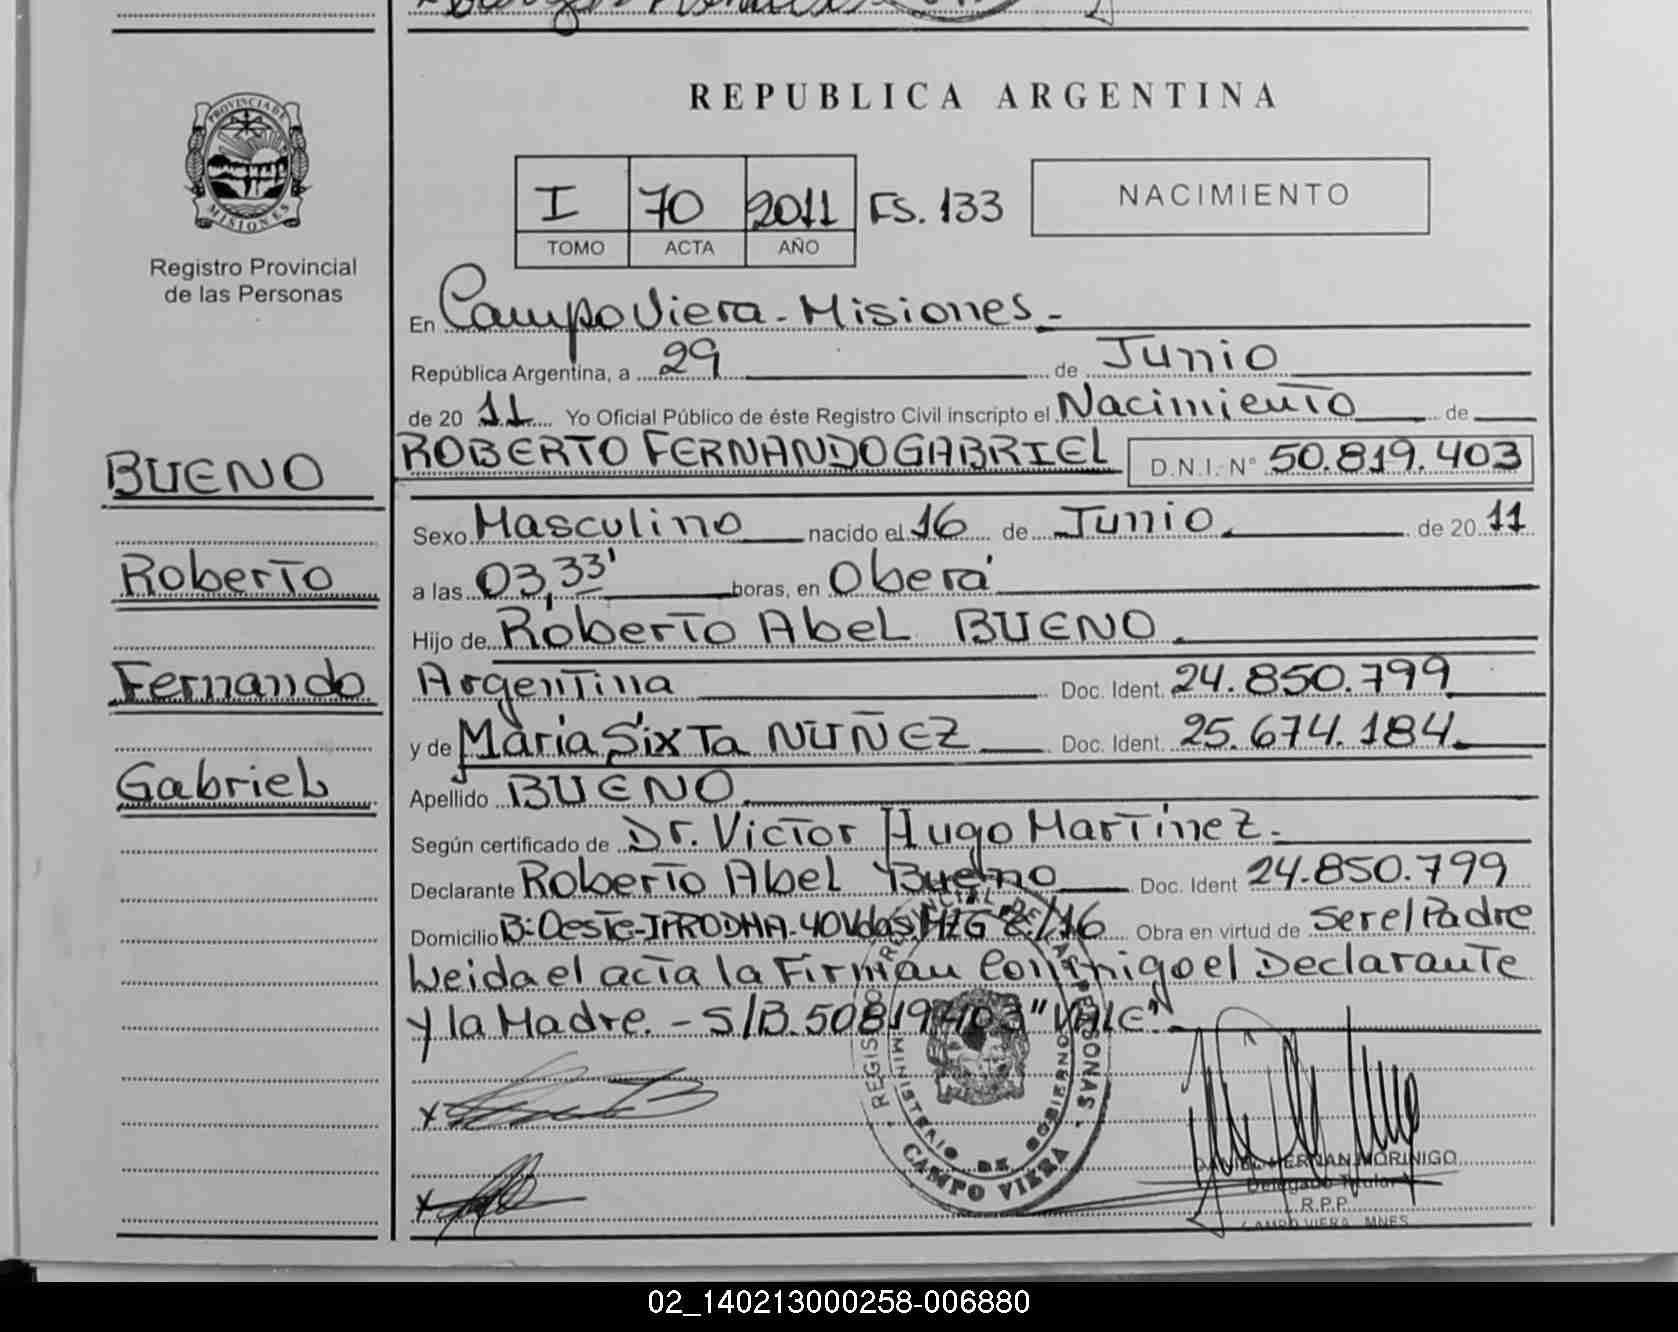 REPUBLICA ARGENTINA
PROVINCIA DE
MISIONES
Registro Provincial
de las Personas
I 70 2011 FS. 133
TOMO ACTA AÑO
NACIMIENTO
En Campo Viera - Misiones -
República Argentina, a 29 de Junio
de 20 11 Yo Oficial Público de éste Registro Civil inscripto el Nacimiento de
ROBERTO FERNANDO GABRIEL D.N.I. N° 50.819.403
BUENO
Roberto
Fernando
Gabriel
Sexo Masculino nacido el 16 de Junio. de 20 11
a las 03,33' horas, en Oberá
Hijo de Roberto Abel BUENO.
Argentina Doc. Ident. 24.850.799
y de María Sixta NUÑEZ Doc. Ident. 25.674.184.
Apellido BUENO
Según certificado de Dr. Victor Hugo Martínez.
Declarante Roberto Abel Bueno Doc. Ident 24.850.799
Domicilio B: Oeste-IPRODHA-40Vdas Obra en virtud de ser el Padre
Leida el acta la Firman Conmigo el Declarante
y la Madre. - S/B. 50819403 "VALE"
REGISTRO PROVINCIAL DE LAS PERSONAS
MINISTERIO DE GOBIERNO
CAMPO VIERA
HERNAN MORINIGO
Delegado Titular
R.P.P.
CAMPO VIERA MNES
02_140213000258-006880